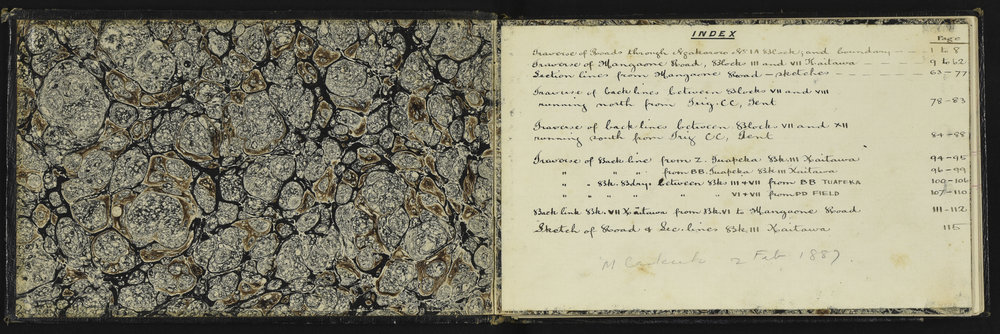 INDEX
Page
Traverse of Roads through Ngakaroro No 1A Block, and boundary — — 1 to 8
Traverse of Mangaone Road, Blocks III and VII Kaitawa — — 9 to 62
Section lines from Mangaone Road — sketches — — — 63-77
Traverse of back lines between Blocks VII and VIII
running north from Trig. CC, Tent 78-83
Traverse of back lines between Block VII and XII
running south from Trig CC, Tent 84-88
Traverse of Back line from Z. Tuapeka Bk. III Kaitawa 94-95
" " " from BB. Tuapeka Bk III Kaitawa 96-99
" " Bk. Bdry. between Bk III + VII from BB TUAPEKA 100-106
" " " " " VI + VII from PD FIELD 107-110
Back line Bk. VII Kaitawa from Bk. VI to Mangaone Road 111-112
Sketch of Road & Sec. lines Bk III Kaitawa 115
2 Feb 1887.